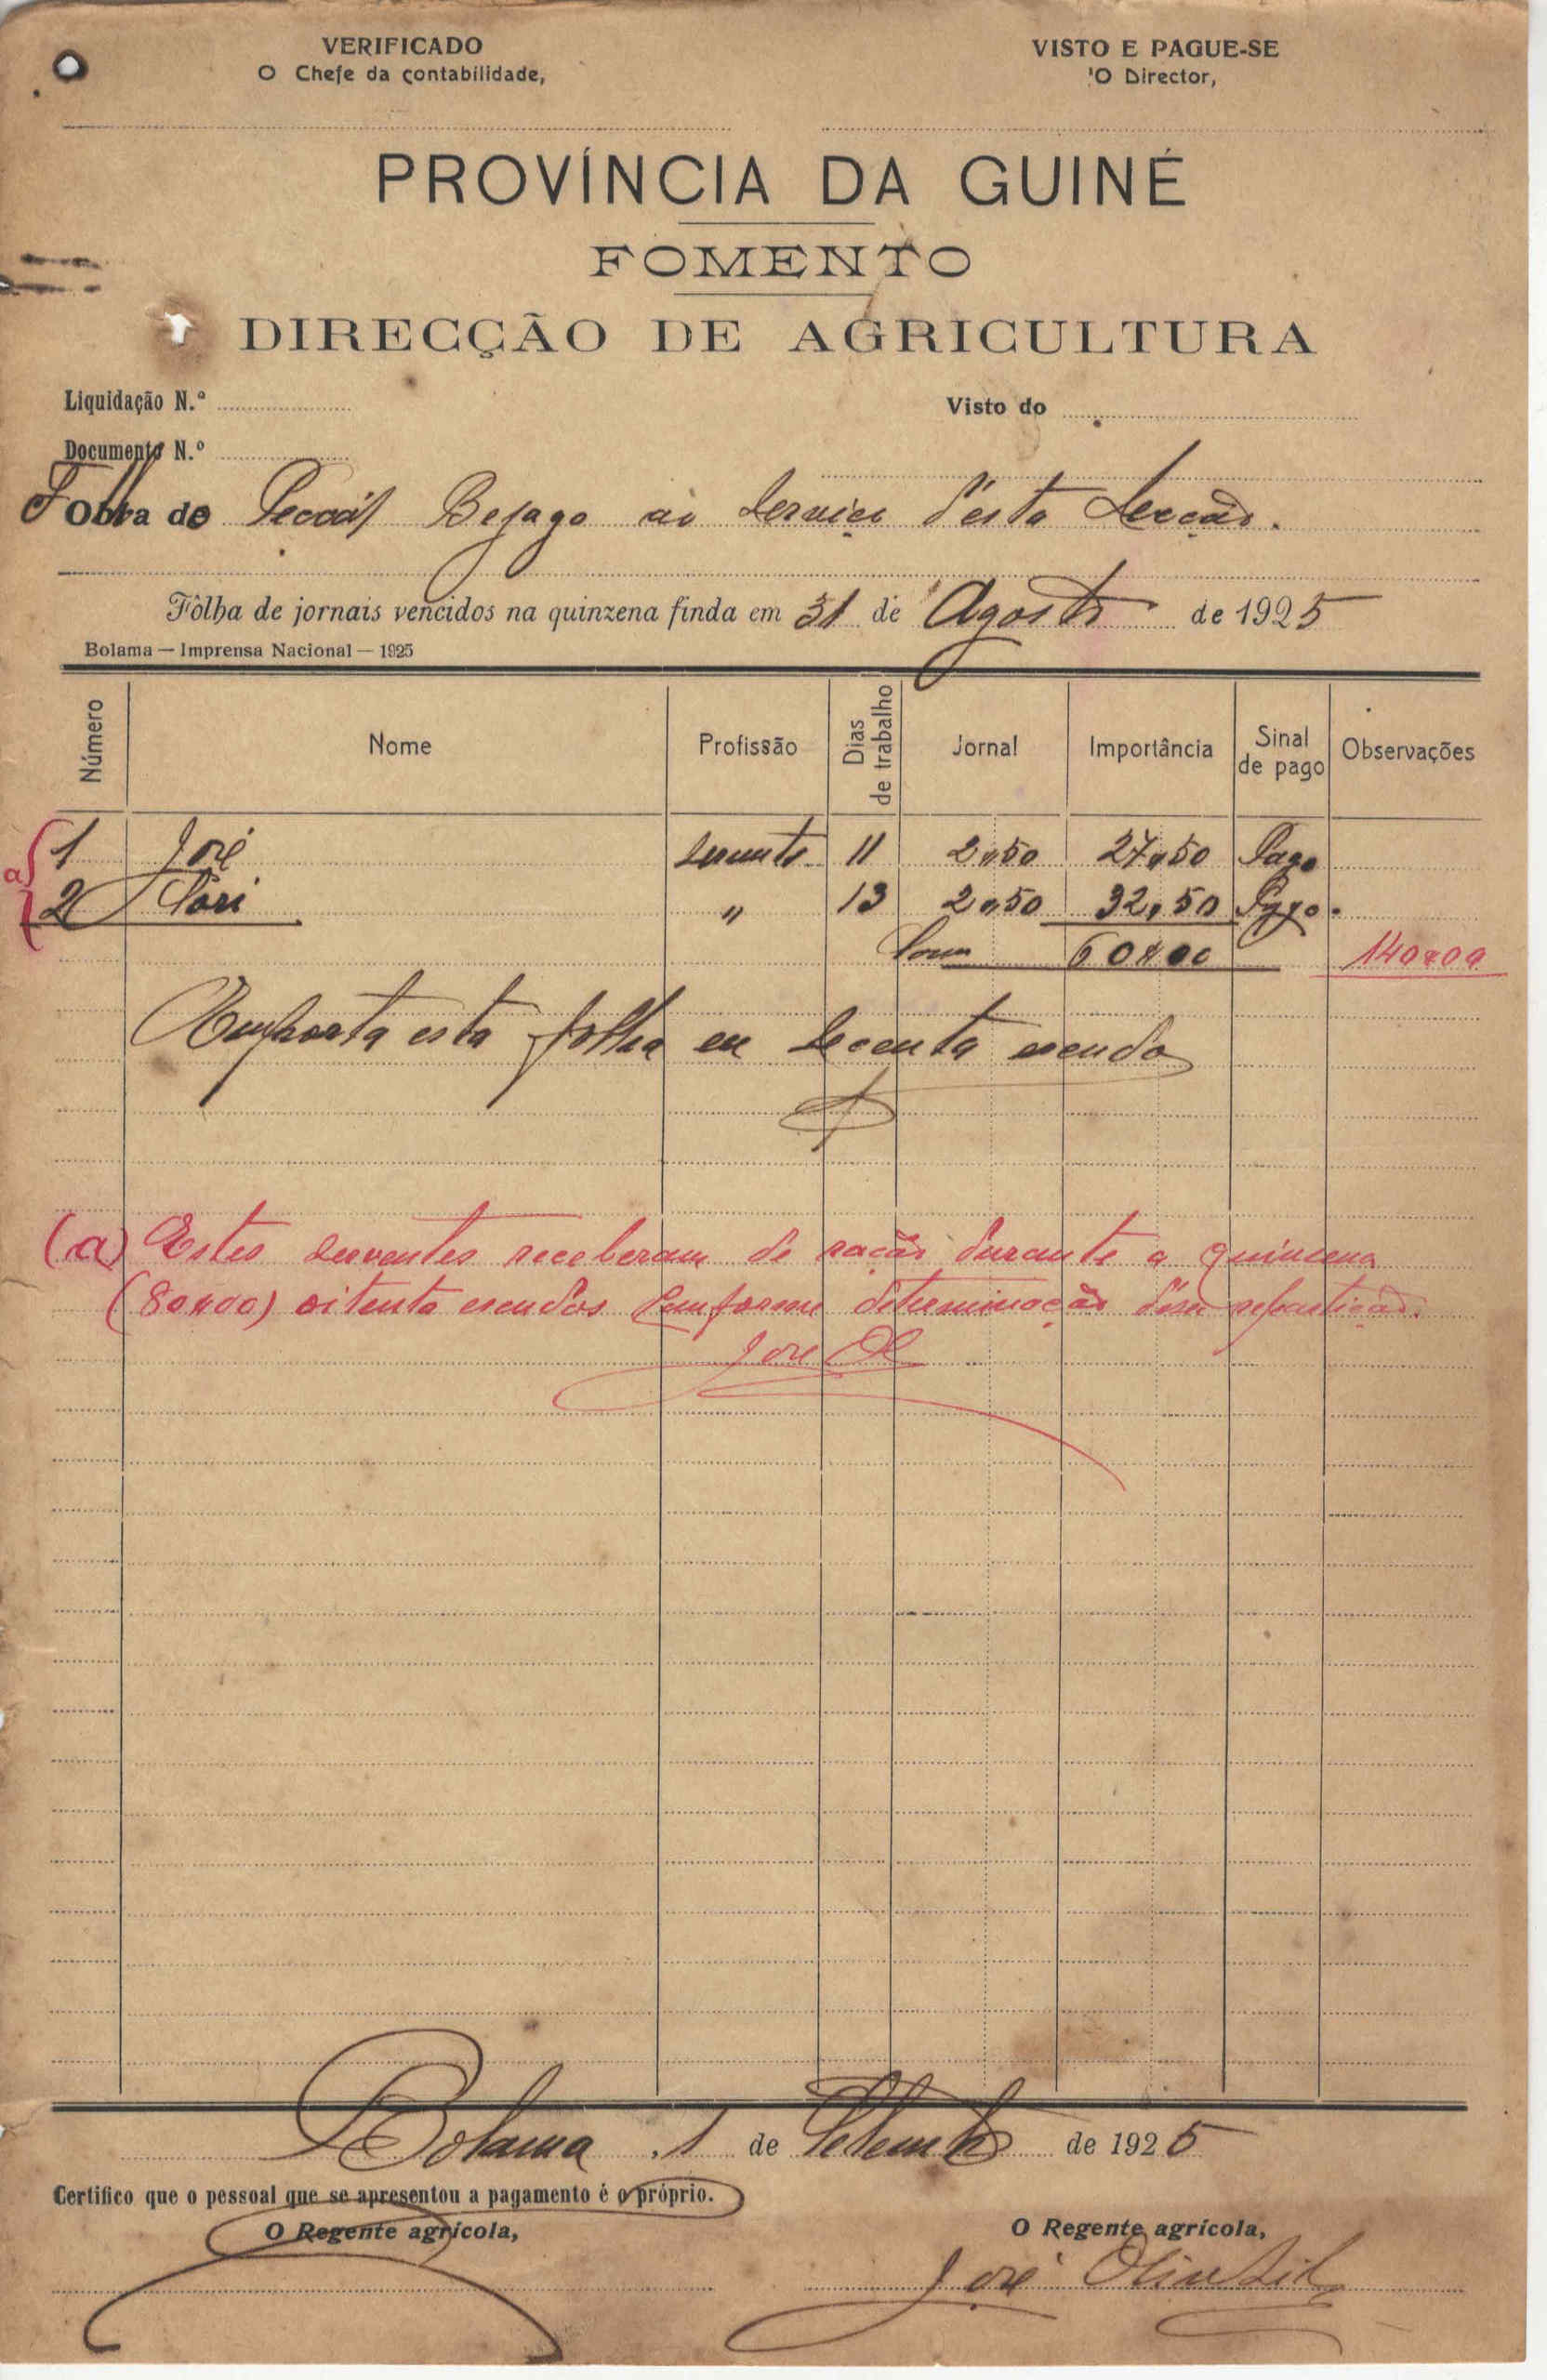 VERIFICADO
O Chefe da contabilidade,
VISTO E PAGUE-SE
O Director,
PROVÍNCIA DA GUINÉ
FOMENTO
DIRECÇÃO DE AGRICULTURA
Liquidação N.º
Visto do
Documento N.º
Folha de Bejago ao Serviço d'esta Secção.
Fôlha de jornais vencidos na quinzena finda em 31 de Agosto de 1925
Bolama — Imprensa Nacional — 1925
Número Nome Profissão Dias de trabalho Jornal Importância Sinal de pago Observações
a
1 José Servente 11 2,50 27,50 Pago
2 " 13 2,50 32,50 Pago.
Soma 60$00 140$00
Emporta esta folha em secenta escudo
(a) Estes serventes receberam de ração durante a quinzena
(80$00) oitenta escudos Comforme determinação dessa repartição.
José
Bolama, 1 de Setembro de 1925
Certifico que o pessoal que se apresentou a pagamento é o próprio.
O Regente agrícola,
O Regente agrícola,
José